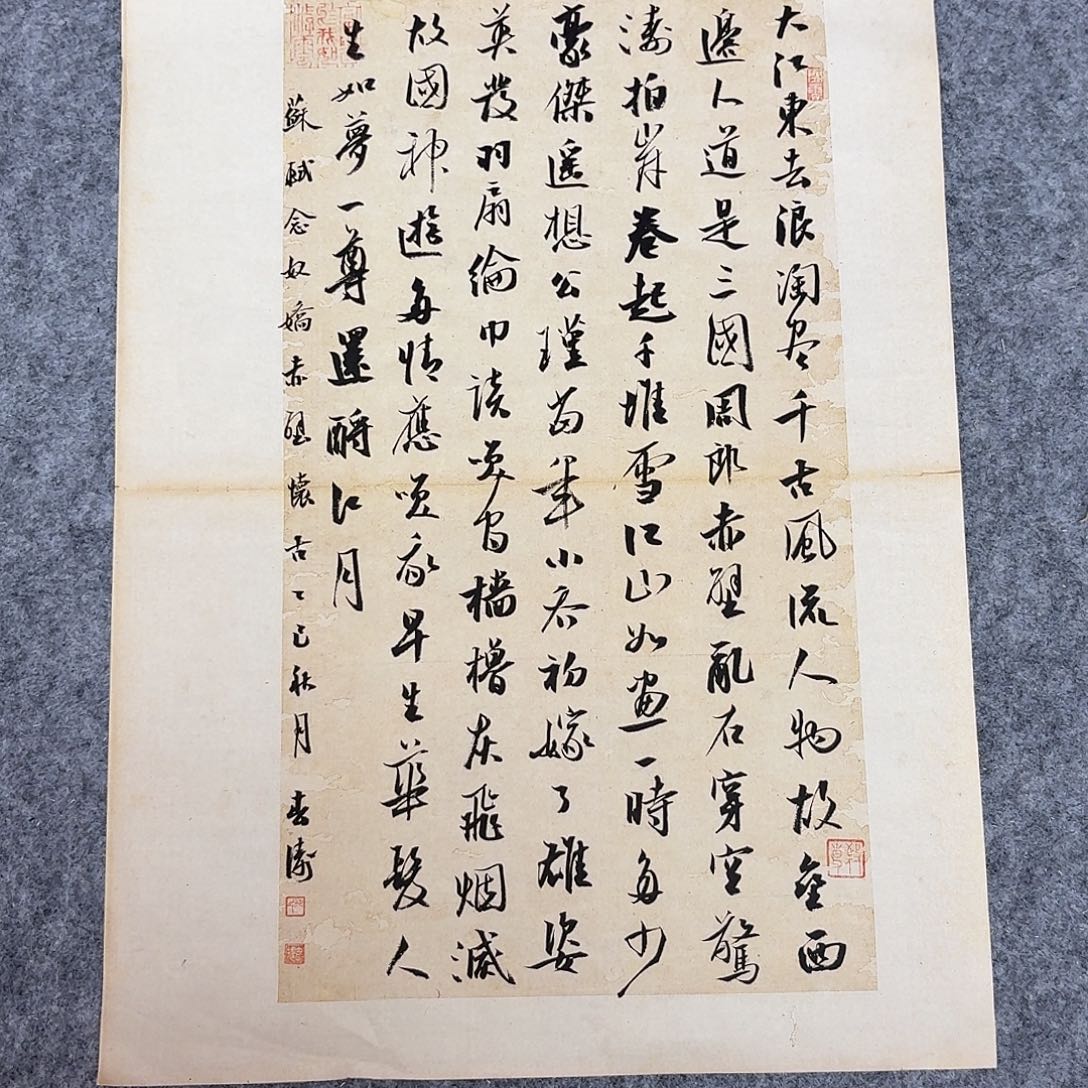 大江東去浪淘尽千古風流人物故垒西
邊人道是三國周郎赤壁亂石穿空驚
濤拍岸卷起千堆雪江山如畫一時多少
豪傑遥想公瑾當年小喬初嫁了雄姿
英發羽扇綸巾談笑間檣櫓灰飛烟滅
故國神遊多情應笑我早生華髮人
生如夢一尊還酹江月
蘇軾念奴嬌赤壁懷古乙巳秋月春濤